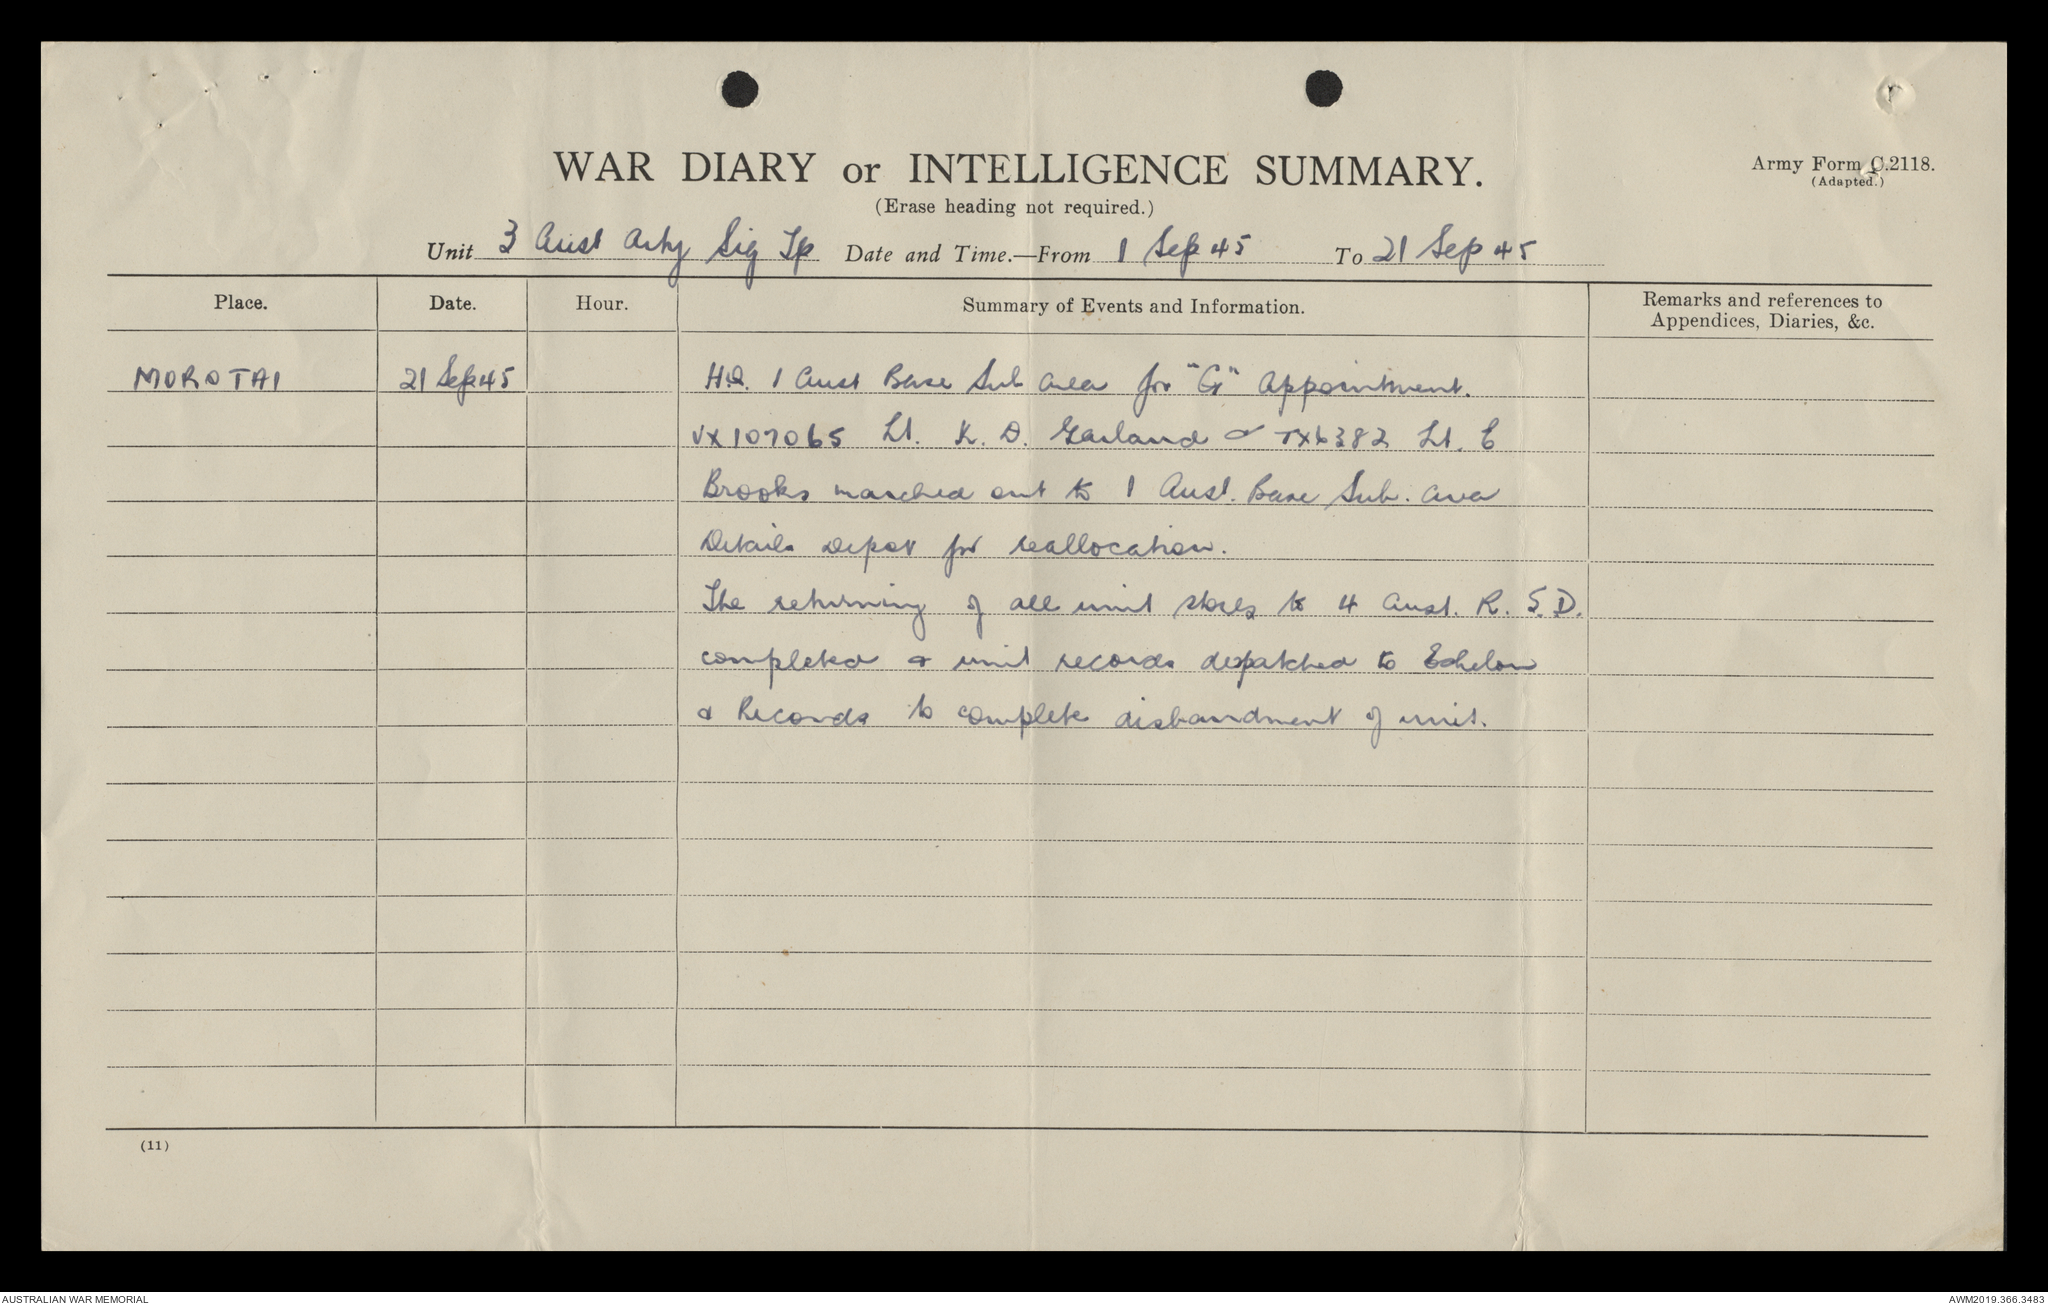 WAR DIARY or INTELLIGENCE SUMMARY.
Army Form C.2118.
(Adapted.)
(Erase heading not required.)
Unit 3 Aust Arty Sig Tp Date and Time.—From 1 Sep 45 To 21 Sep 45
Place. Date. Hour. Summary of Events and Information. Remarks and references to
Appendices, Diaries, &c.
MOROTAI 21 Sep 45 H.Q. 1 Aust Base Sub Area for "G" Appointment.
VX107065 Lt. K. D. Garland & TX6382 Lt. E
Brooks marched out to 1 Aust. Base Sub. Area
Details Depot for reallocation.
The returning of all unit stores to 4 Aust. R. S. D.
completed & unit records despatched to Echelon
& Records to complete disbandment of unit.
(11)
AUSTRALIAN WAR MEMORIAL
AWM2019.366.3483